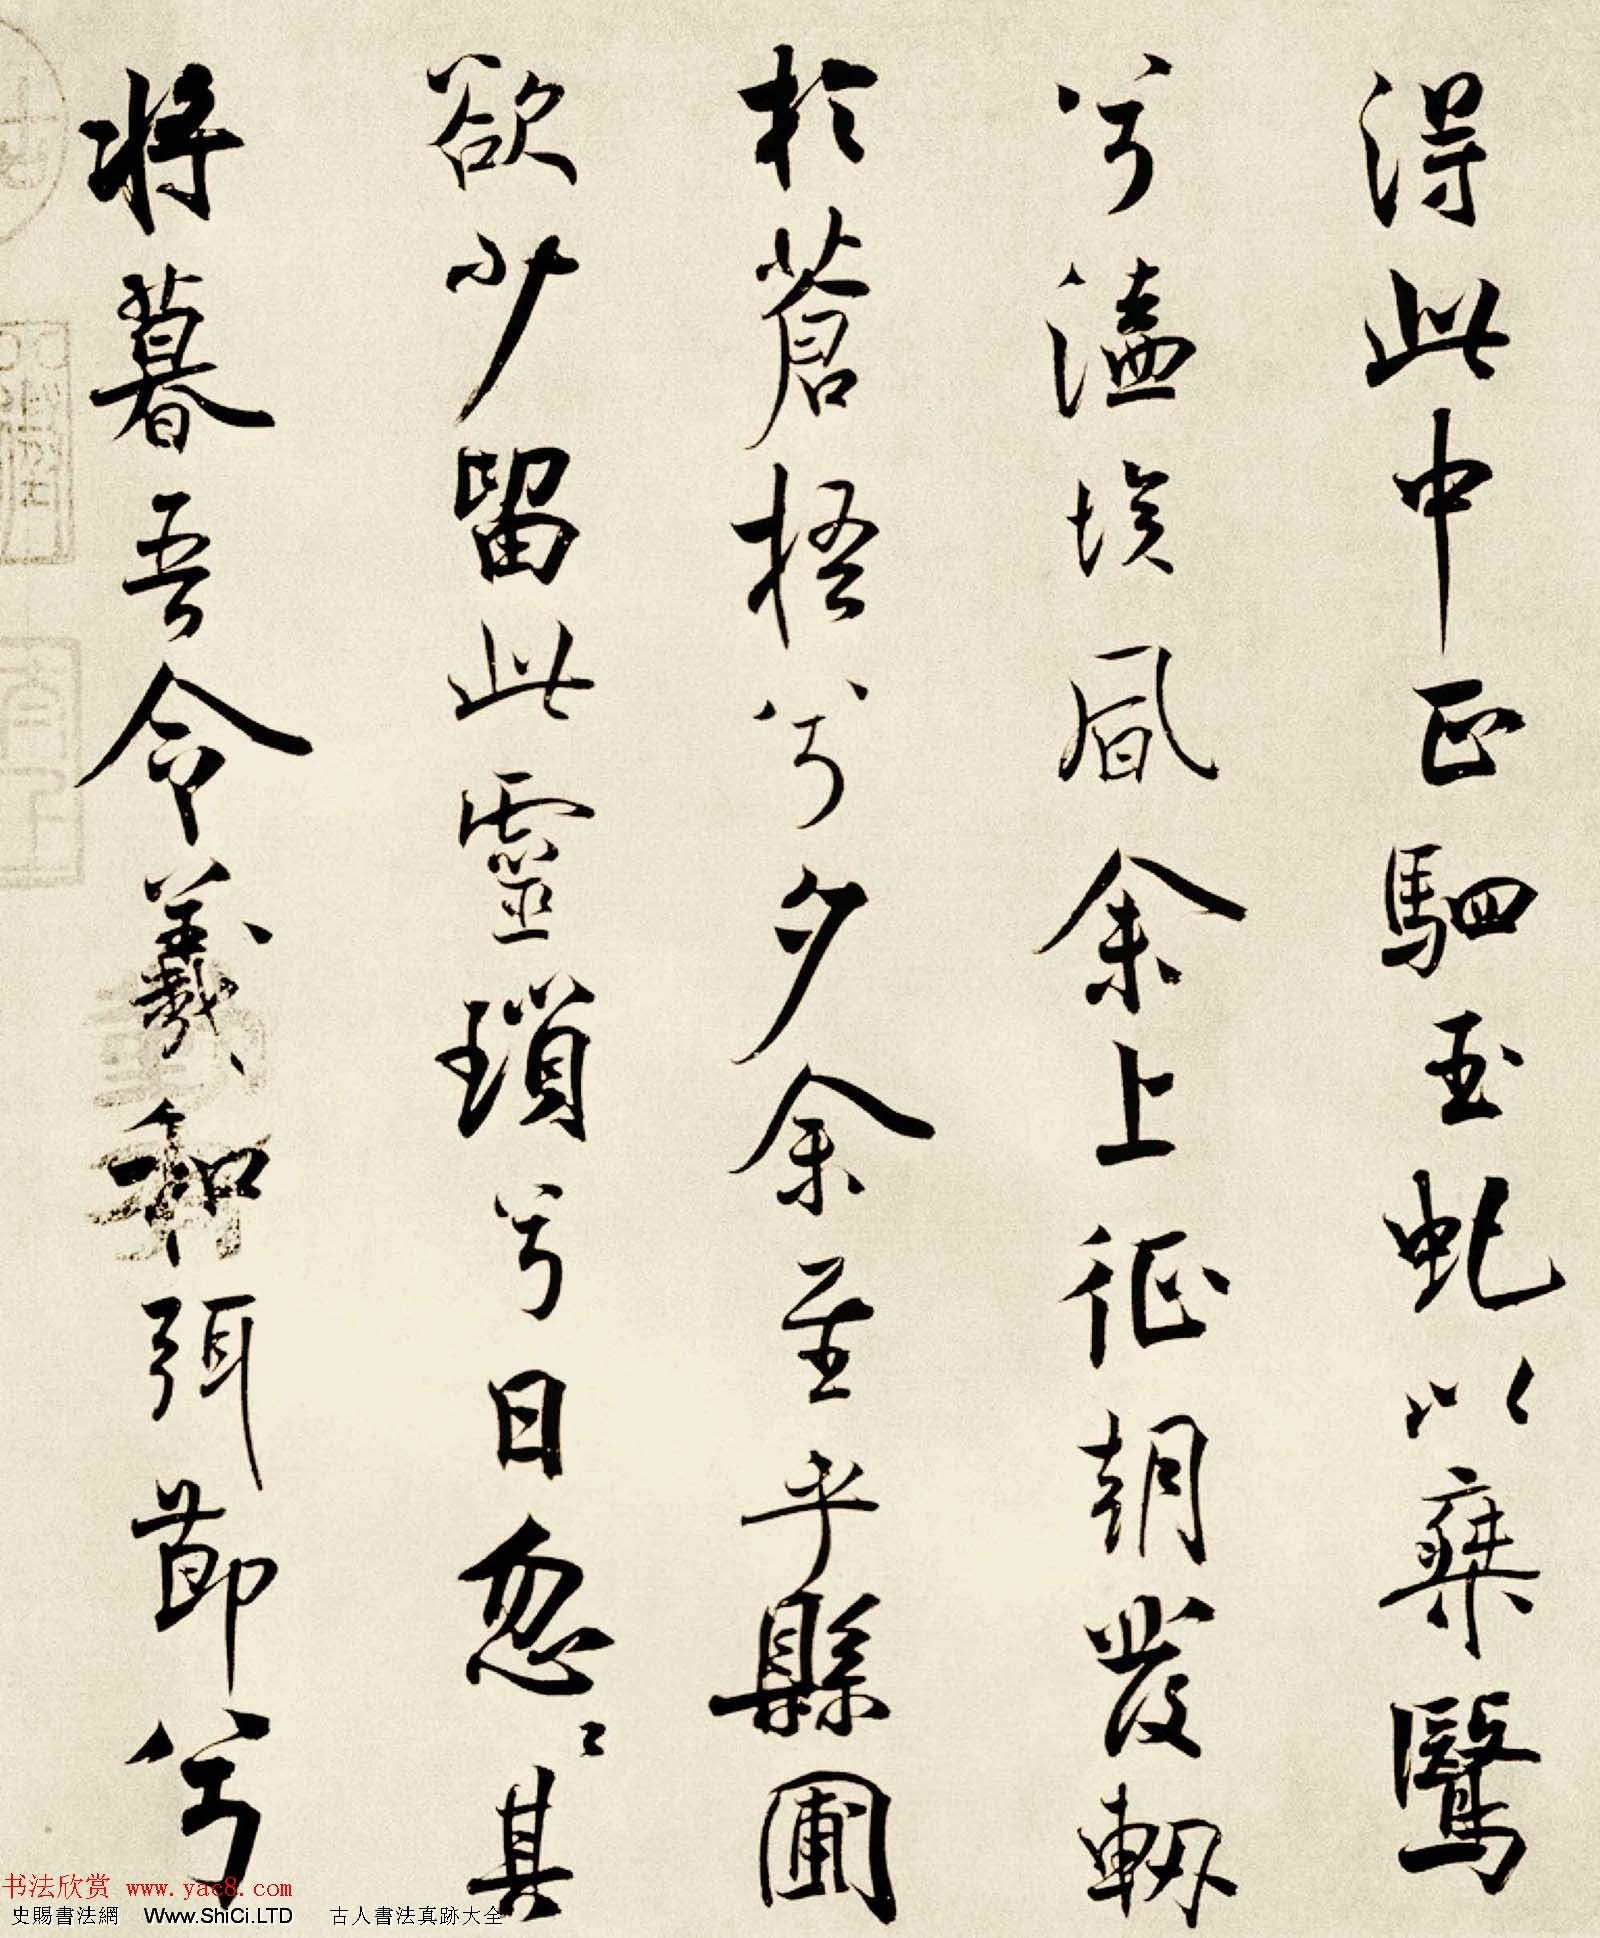 得此中正駟玉虬以椉鷖
兮溘埃風余上征朝發軔
於蒼梧兮夕余至乎縣圃
欲少留此靈瑣兮日忽〻其
將暮吾令羲和弭節兮
书法欣赏 www.yac8.com
史賜書法網 Www.ShiCi.LTD 古人書法真跡大全